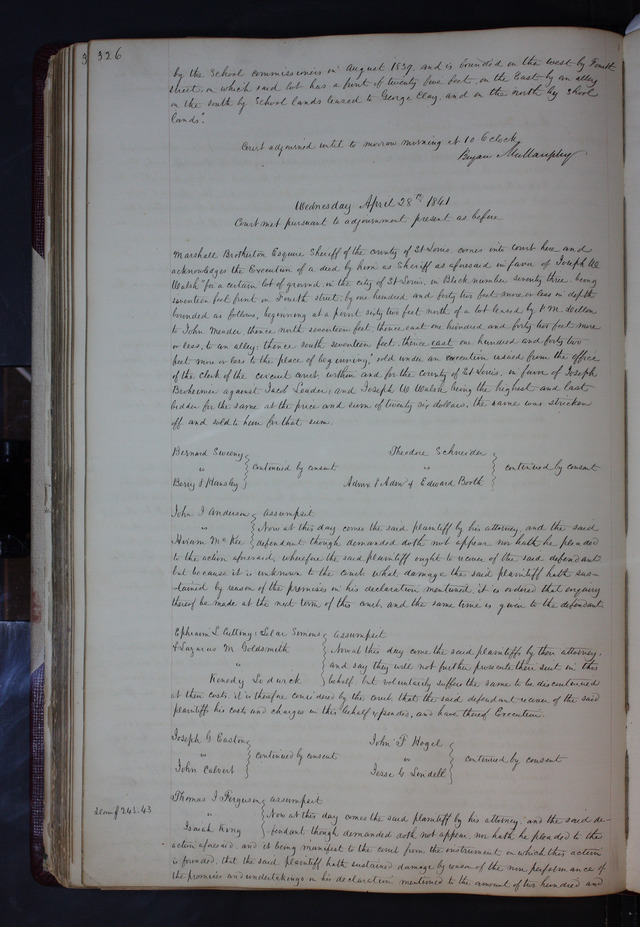 326
by the School commissioners in August 1839. and is bounded on the west by Fourth
street, on which said lot has a front of twenty five feet, on the East by an alley
on the south by School lands leased to George Clay, and on the north by School
lands".
Court adjourned until to morrow morning at 10 O'clock
Bryan Mullanphy
Wednesday April 28th 1841
Court met pursuant to adjournment present as before
Marshall Brotherton Esquire Sheriff of the county of St Louis comes into court here and
acknowledges the Execution of a deed by him as Sheriff as aforesaid in favor of Joseph W
Walsh "for a certain lot of ground in the city of St Louis, in Block number seventy three being
seventeen feet front on Fourth street by one hundred and forty two feet more or less in depth
bounded as follows, beginning at a point sixty two feet north of a lot leased by P. M. Dillon
to John Mender thence north seventeen feet, thence east one hundred and forty two feet more
or less, to an alley, thence south seventeen feet, thence east one hundred and forty two
feet more or less to the place of beginning," sold under an execution issued from the office
of the clerk of the circuit court, within and for the county of St Louis, in favor of Joseph
against Jacob Leader, and Joseph W Walsh being the highest and last
bidder for the same at the price and sum of twenty six dollars, the same was stricken
off and sold to him for that sum.
Bernard Sweeny
"
Berry S Hansley
continued by consent
Theodore Schneider
"
Admr & Admx of Edward Booth
continued by consent
John J Anderson assumpsit
" Now at this day comes the said plaintiff by his attorney, and the said
Hiram McKee defendant though demanded doth not appear nor hath he pleaded
to the action aforesaid, wherefore the said plaintiff ought to recover of the said defendant
but because it is unknown to the court what damage the said plaintiff hath sus-
tained by reason of the premises in his declaration mentioned, it is ordered that enquiry
thereof be made at the next term of this court, and the same time is given to the defendant
Ephraim L Cutting, Silas Simons assumpsit
& Lazarus M Goldsmith Now at this day come the said plaintiffs by their attorney,
" and say they will not further prosecute their suit in this
Kenedy Lodwick behalf but voluntarily suffer the same to be discontinued
at their costs, it is therefore considered by the court that the said defendant recover of the said
plaintiffs his costs and charges in this behalf expended, and have thereof Execution.
Joseph G Easton
"
John Calvert
continued by consent
John F Hogel
"
Jesse G Lindell
continued by consent
Thomas J Ferguson assumpsit
243.43
" Now at this day comes the said plaintiff by his attorney, and the said de-
Isaiah King fendant though demanded doth not appear, nor hath he pleaded to the
action aforesaid, and it being manifest to the court from the instrument on which this action
is founded, that the said plaintiff hath sustained damage by reason of the non performance of
the promises and undertakings in his declaration mentioned to the amount of two hundred and